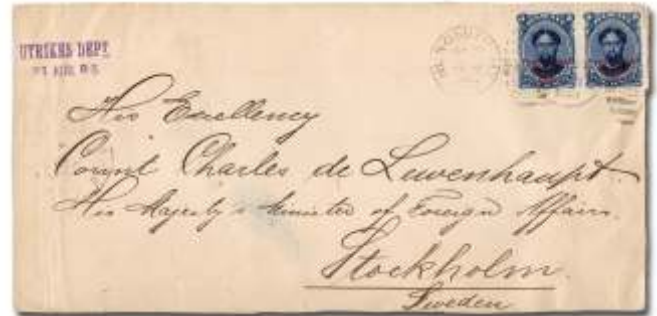 UTRIKES DEPT.
His Excellency
Count Charles de Lewenhaupt
His Majesty's Minister of Foreign Affairs.
Stockholm.
Sweden